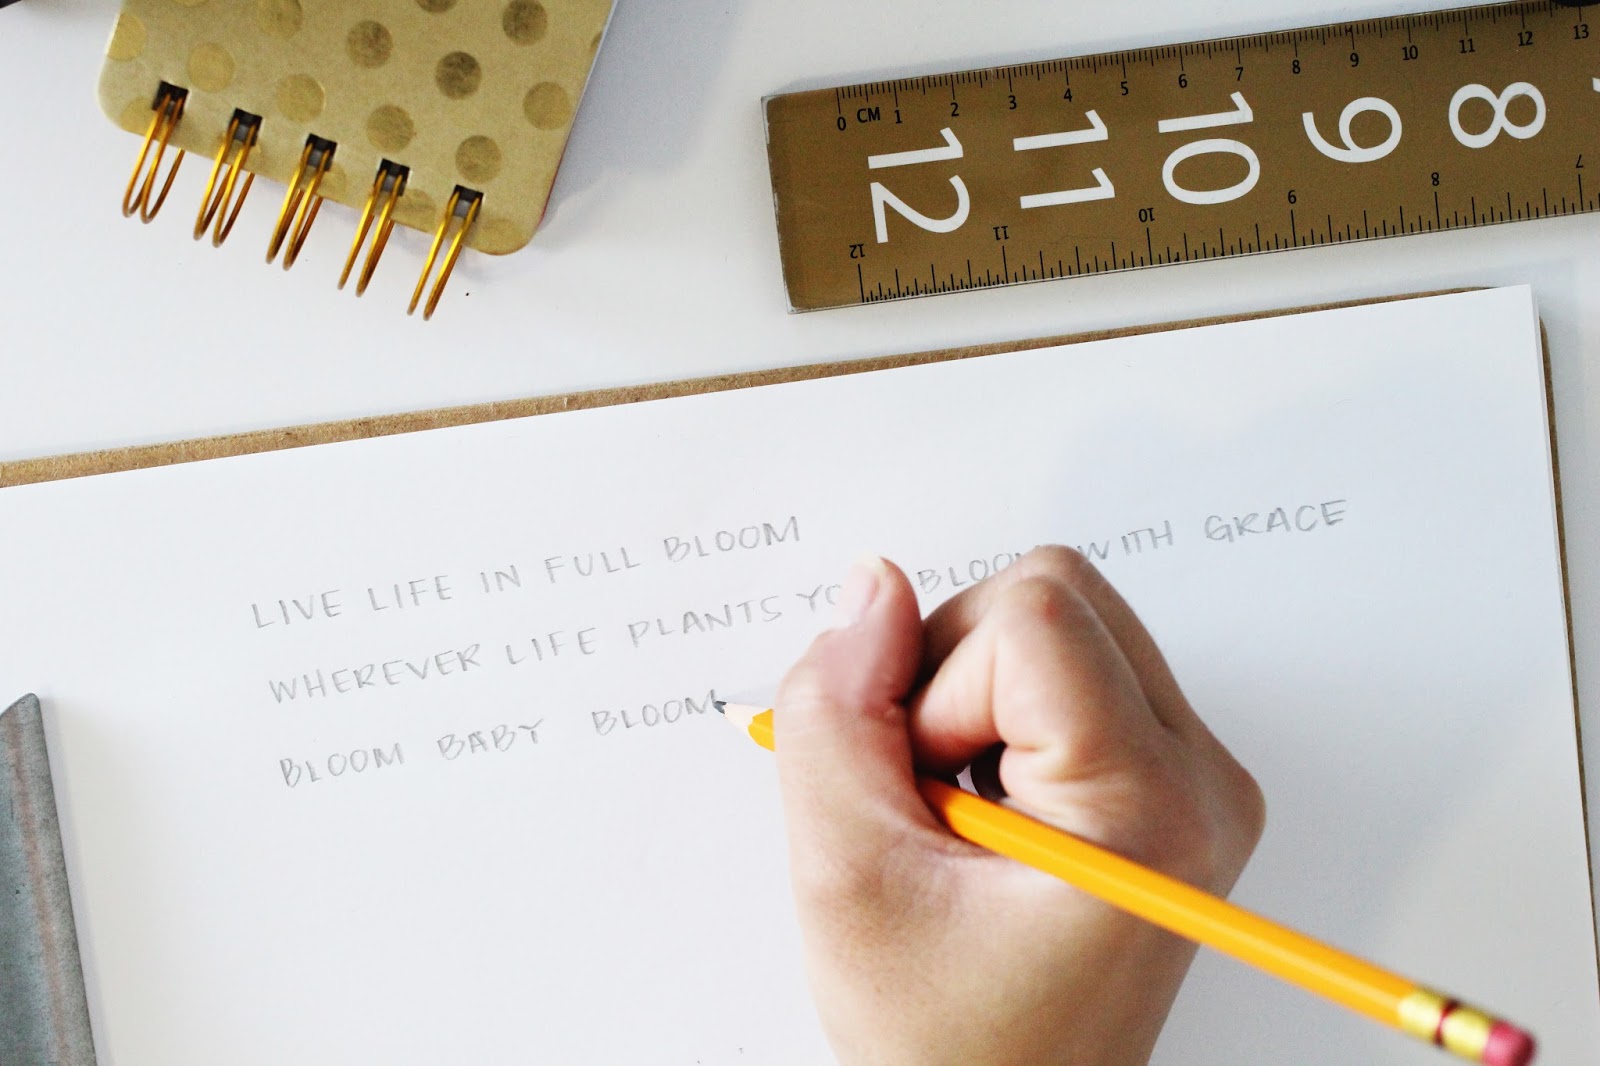 0 CM 1 2 3 4 5 6 7 8 9 10 11 12 13
12 11 10 9 8
12 11 10 9 8 7
LIVE LIFE IN FULL BLOOM
WHEREVER LIFE PLANTS BLOOM WITH GRACE
BLOOM BABY BLOOM